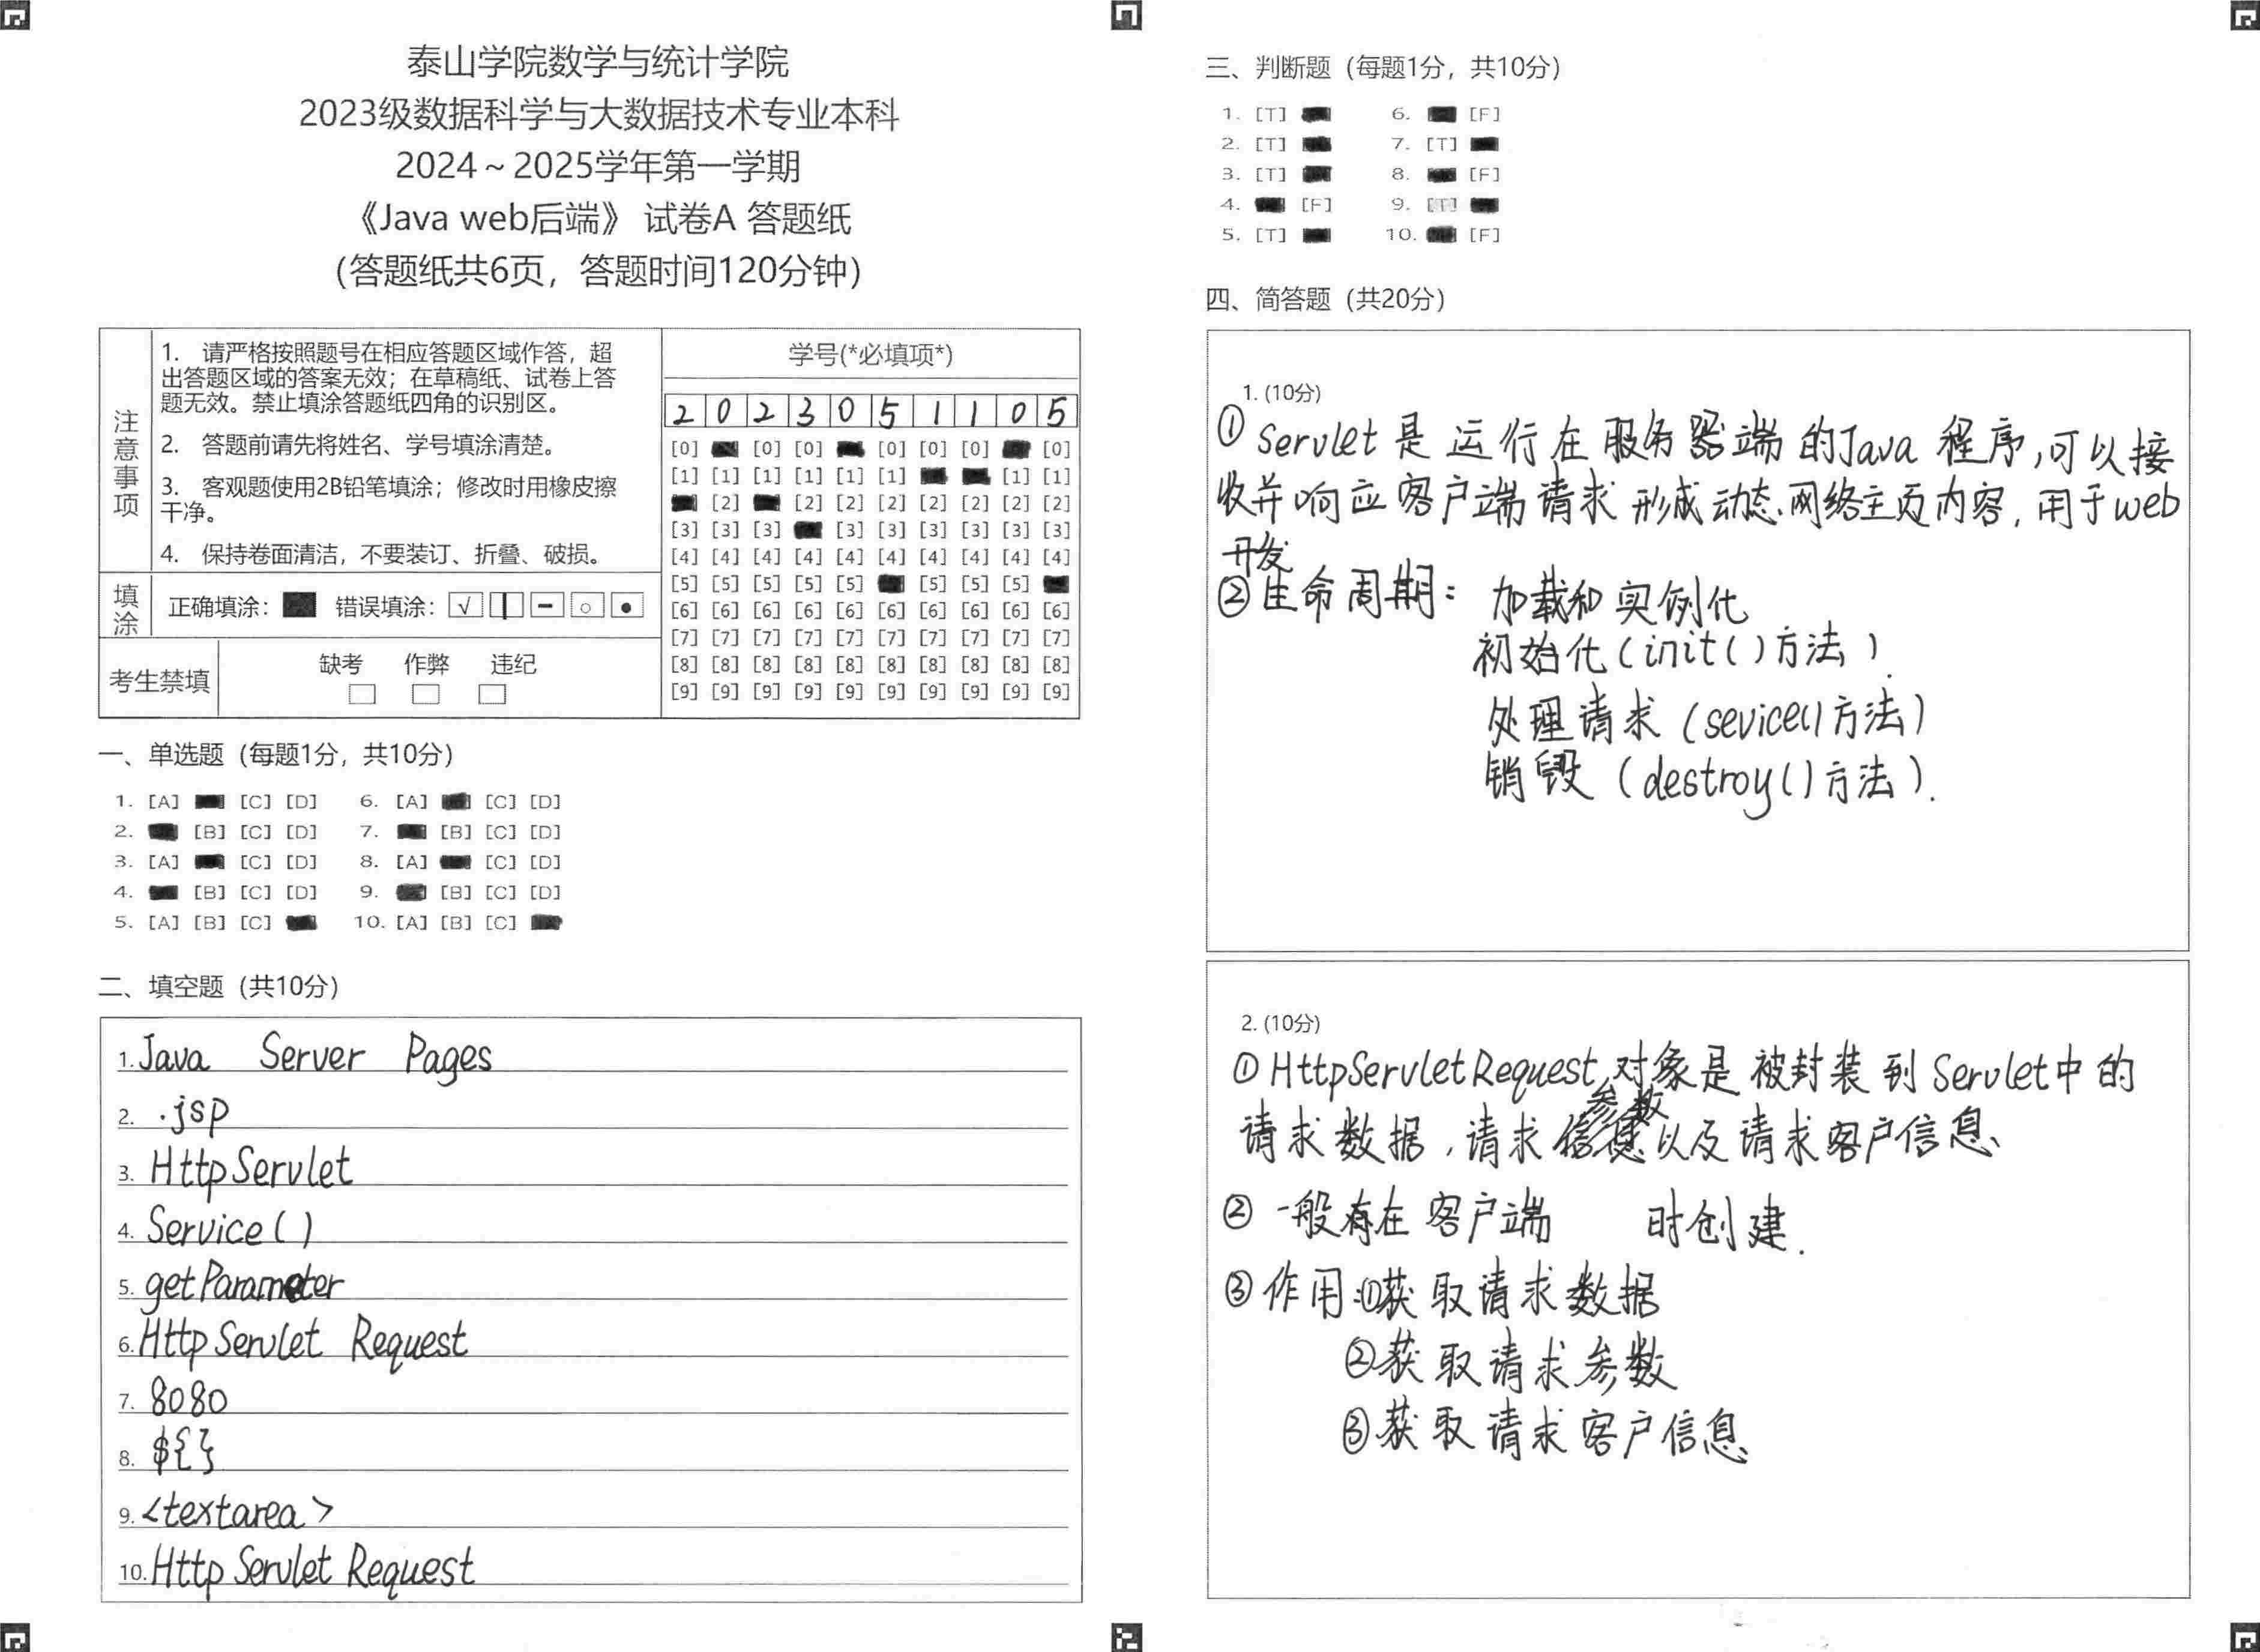 泰山学院数学与统计学院
2023级数据科学与大数据技术专业本科
2024～2025学年第一学期
《Java web后端》 试卷A 答题纸
(答题纸共6页，答题时间120分钟)
注意事项
1. 请严格按照题号在相应答题区域作答，超
出答题区域的答案无效；在草稿纸、试卷上答
题无效。禁止填涂答题纸四角的识别区。
2. 答题前请先将姓名、学号填涂清楚。
3. 客观题使用2B铅笔填涂；修改时用橡皮擦
干净。
4. 保持卷面清洁，不要装订、折叠、破损。
填涂
正确填涂： 错误填涂：
考生禁填
缺考 作弊 违纪
学号(*必填项*)
2 0 2 3 0 5 1 1 0 5
[0] [0] [0] [0] [0] [0] [0]
[1] [1] [1] [1] [1] [1] [1] [1]
[2] [2] [2] [2] [2] [2] [2] [2]
[3] [3] [3] [3] [3] [3] [3] [3] [3]
[4] [4] [4] [4] [4] [4] [4] [4] [4] [4]
[5] [5] [5] [5] [5] [5] [5] [5]
[6] [6] [6] [6] [6] [6] [6] [6] [6] [6]
[7] [7] [7] [7] [7] [7] [7] [7] [7] [7]
[8] [8] [8] [8] [8] [8] [8] [8] [8] [8]
[9] [9] [9] [9] [9] [9] [9] [9] [9] [9]
一、单选题（每题1分，共10分）
1. [A] [C] [D] 6. [A] [C] [D]
2. [B] [C] [D] 7. [B] [C] [D]
3. [A] [C] [D] 8. [A] [C] [D]
4. [B] [C] [D] 9. [B] [C] [D]
5. [A] [B] [C] 10. [A] [B] [C]
二、填空题（共10分）
1. Java Server Pages
2. .jsp
3. HttpServlet
4. Service()
5. getParameter
6. HttpServlet Request
7. 8080
8. ${}
9. <textarea>
10. HttpServlet Request
三、判断题（每题1分，共10分）
1. [T] 6. [F]
2. [T] 7. [T]
3. [T] 8. [F]
4. [F] 9. [T]
5. [T] 10. [F]
四、简答题（共20分）
1. (10分)
① Servlet是运行在服务器端的Java程序,可以接
收并响应客户端请求形成动态网络主页内容,用于web
开发
②生命周期: 加载和实例化
初始化(init()方法).
处理请求(sevice()方法)
销毁(destroy()方法).
2. (10分)
①HttpServletRequest对象是被封装到Servlet中的
请求数据,请求参数以及请求客户信息、
② 一般存在客户端 时创建.
③作用:①获取请求数据
②获取请求参数
③获取请求客户信息、